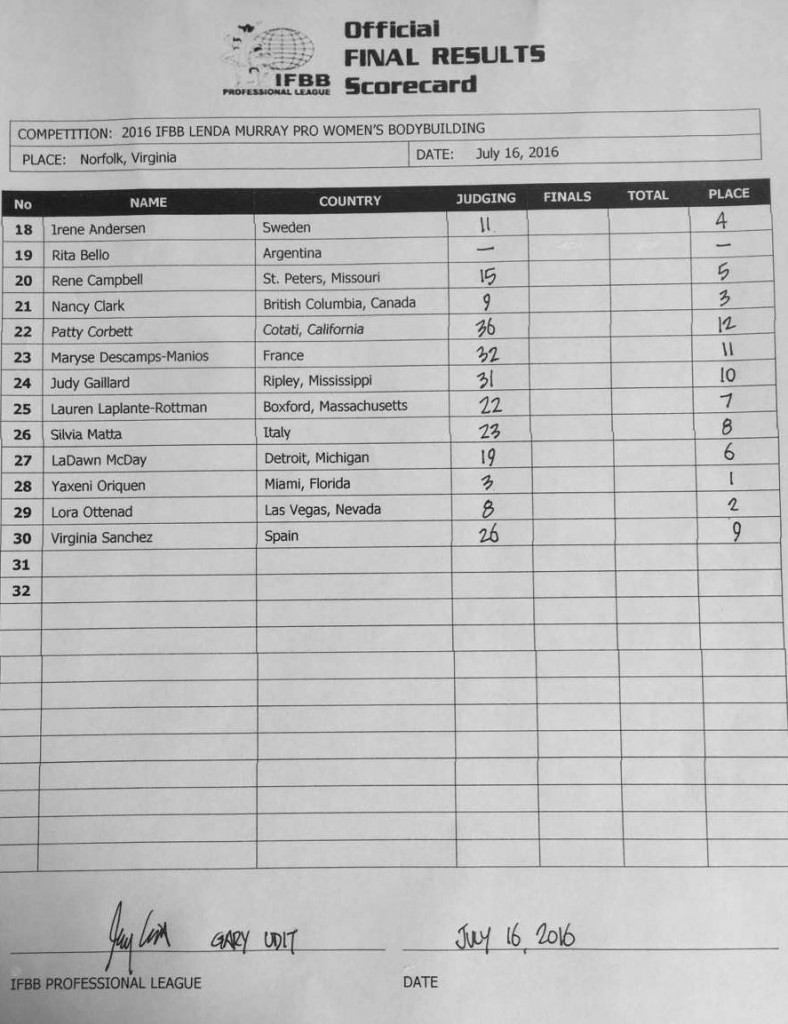 Official
FINAL RESULTS
Scorecard
IFBB
PROFESSIONAL LEAGUE
COMPETITION: 2016 IFBB LENDA MURRAY PRO WOMEN'S BODYBUILDING
PLACE: Norfolk, Virginia DATE: July 16, 2016
No NAME COUNTRY JUDGING FINALS TOTAL PLACE
18 Irene Andersen Sweden 11 4
19 Rita Bello Argentina — —
20 Rene Campbell St. Peters, Missouri 15 5
21 Nancy Clark British Columbia, Canada 9 3
22 Patty Corbett Cotati, California 36 12
23 Maryse Descamps-Manios France 32 11
24 Judy Gaillard Ripley, Mississippi 31 10
25 Lauren Laplante-Rottman Boxford, Massachusetts 22 7
26 Silvia Matta Italy 23 8
27 LaDawn McDay Detroit, Michigan 19 6
28 Yaxeni Oriquen Miami, Florida 3 1
29 Lora Ottenad Las Vegas, Nevada 8 2
30 Virginia Sanchez Spain 26 9
31
32
GARY UDIT JULY 16, 2016
IFBB PROFESSIONAL LEAGUE DATE